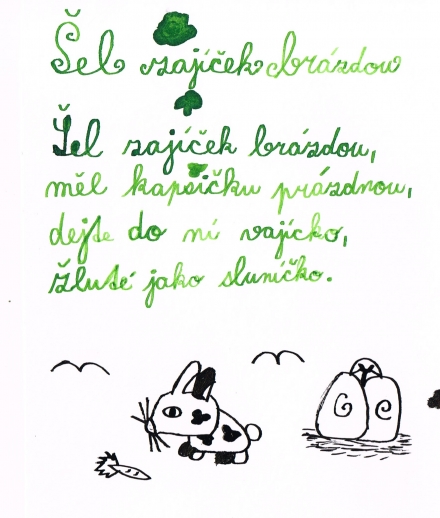 Šel zajíček brázdou
Šel zajíček brázdou,
měl kapsičku prázdnou,
dejte do ní vajíčko,
žluté jako sluníčko.